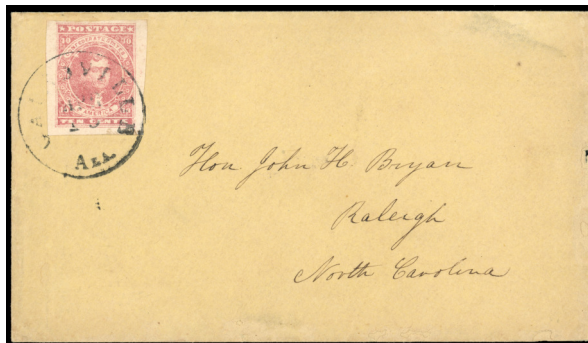 POSTAGE
TEN CENTS
ALA.
Hon John H. Bryan
Raleigh
North Carolina